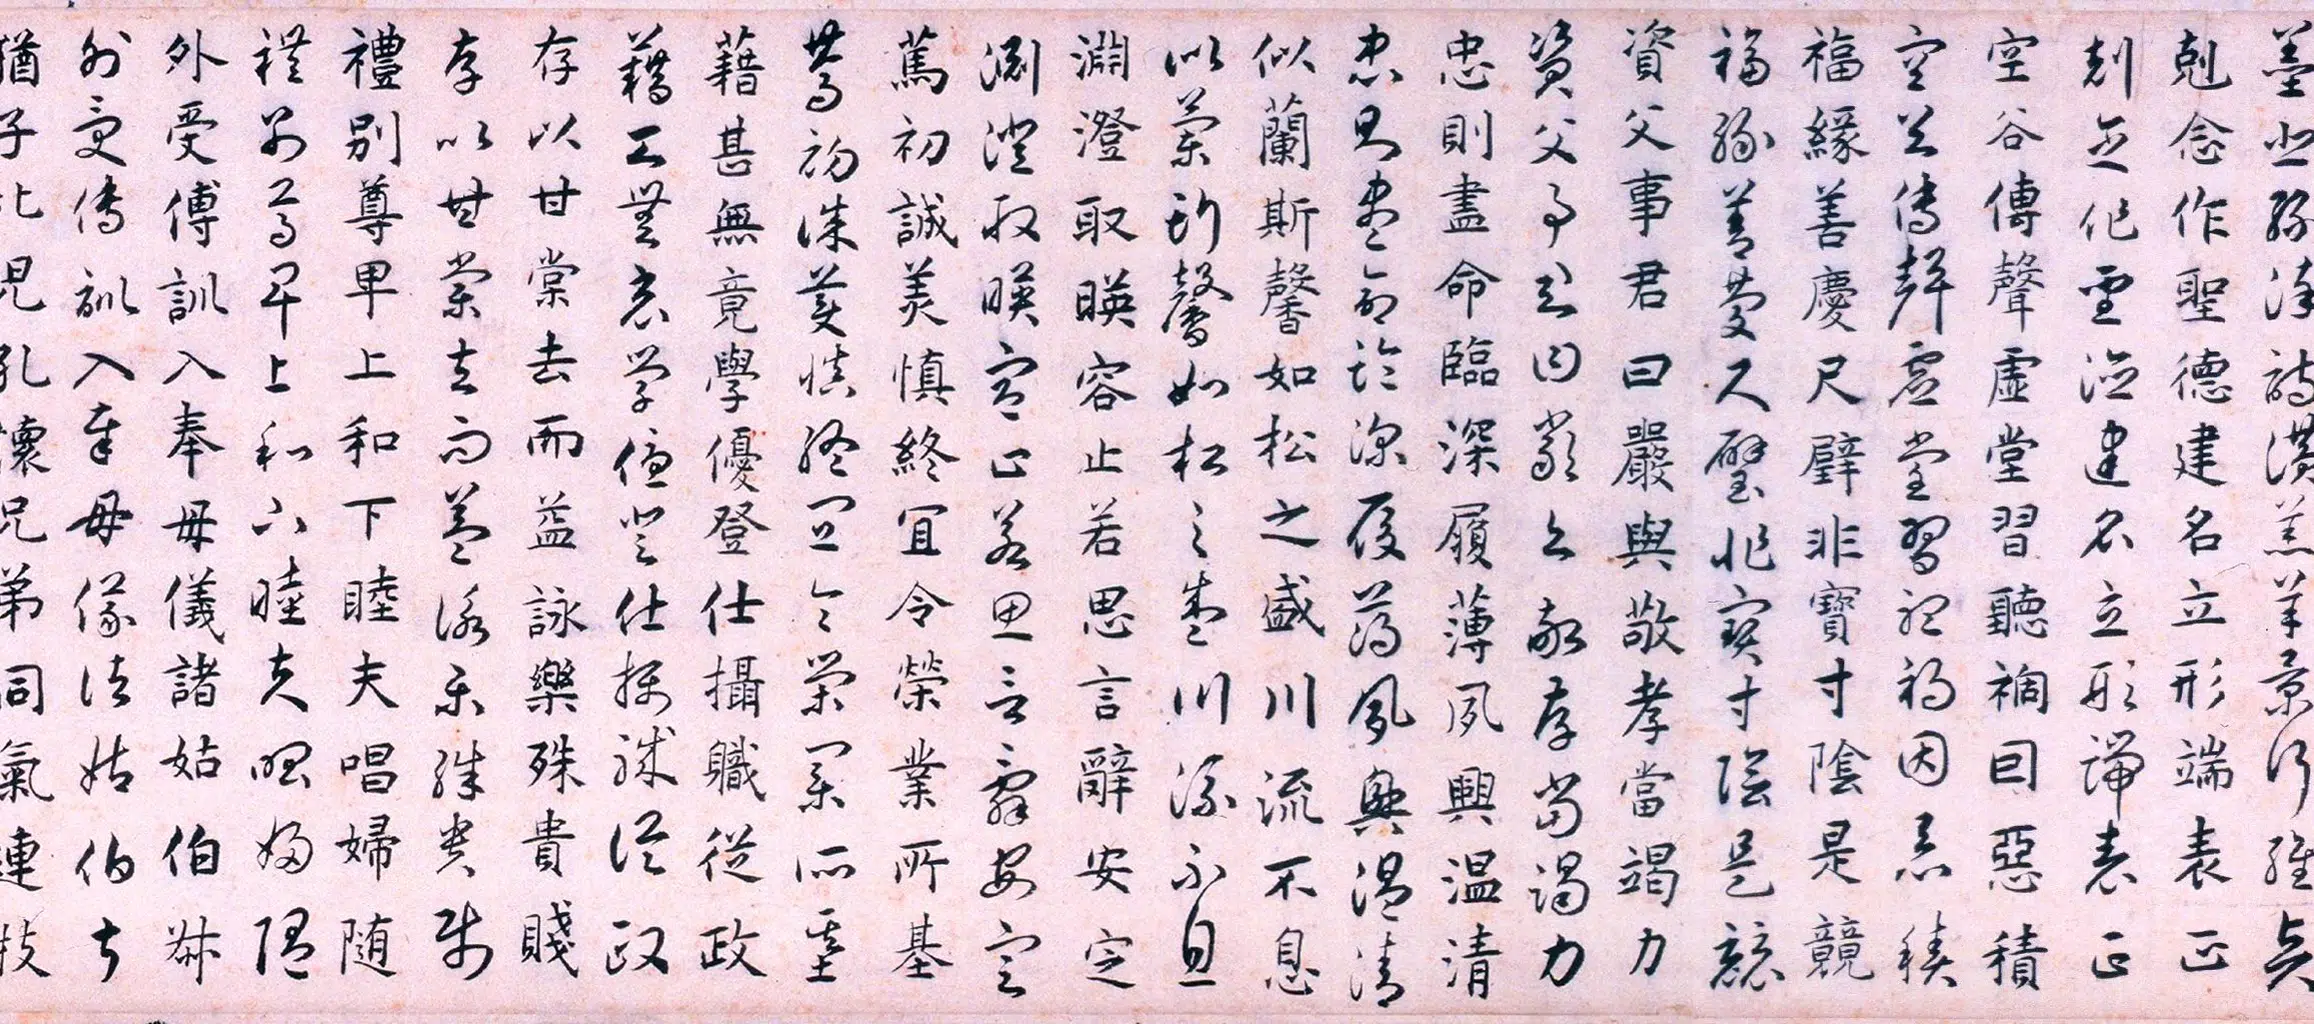 墨悲絲染詩讚羔羊景行維賢
剋念作聖德建名立形端表正
剋念作聖德建名立形端表正
空谷傳聲虛堂習聽禍因惡積
空谷傳聲虛堂習聽禍因惡積
福緣善慶尺璧非寶寸陰是競
福緣善慶尺璧非寶寸陰是競
資父事君曰嚴與敬孝當竭力
資父事君曰嚴與敬孝當竭力
忠則盡命臨深履薄夙興温清
忠則盡命臨深履薄夙興温清
似蘭斯馨如松之盛川流不息
似蘭斯馨如松之盛川流不息
淵澄取暎容止若思言辭安定
淵澄取暎容止若思言辭安定
篤初誠美慎終宜令榮業所基
篤初誠美慎終宜令榮業所基
藉甚無竟學優登仕攝職從政
藉甚無竟學優登仕攝職從政
存以甘棠去而益詠樂殊貴賤
存以甘棠去而益詠樂殊貴賤
禮別尊卑上和下睦夫唱婦随
禮別尊卑上和下睦夫唱婦随
外受傅訓入奉母儀諸姑伯叔
外受傅訓入奉母儀諸姑伯叔
猶子比兒孔懷兄弟同氣連枝